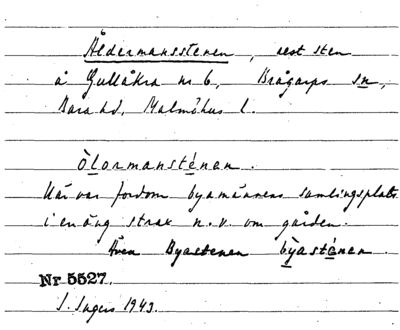 Åldermansstenen, rest sten
å Gullåkra nr 6, Brågarps sn,
Bara hd, Malmöhus l.
Òlormansténan.
Här var fordom byamännens samlingsplats
i en äng strax n.v. om gården.
Även Byastenen bỳasténen.
Nr 5527.
S. Ingers 1943.